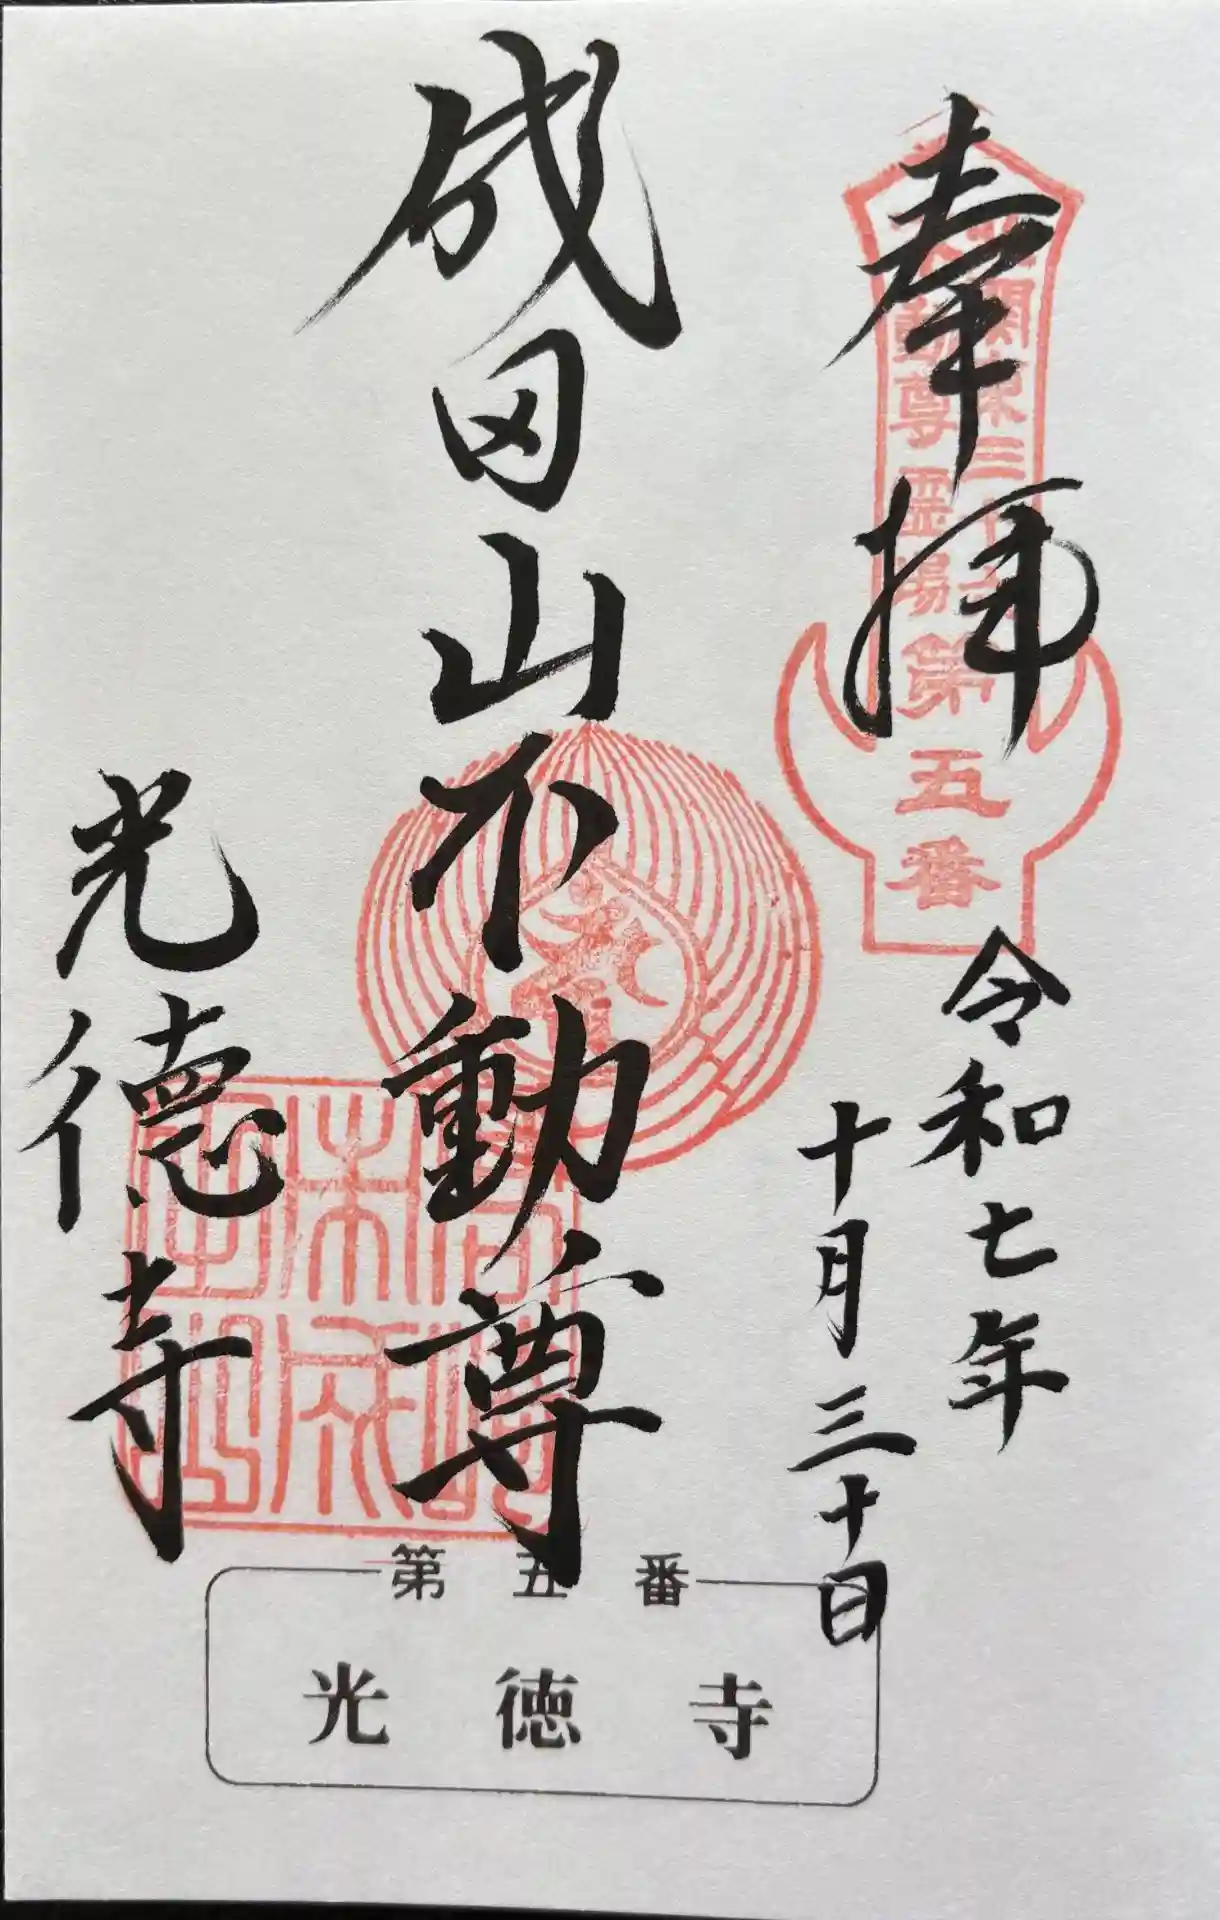 奉拝
北関東三十六
不動尊霊場
第五番
令和七年
十月三十日
成田山不動尊
光徳寺
第五番
光徳寺